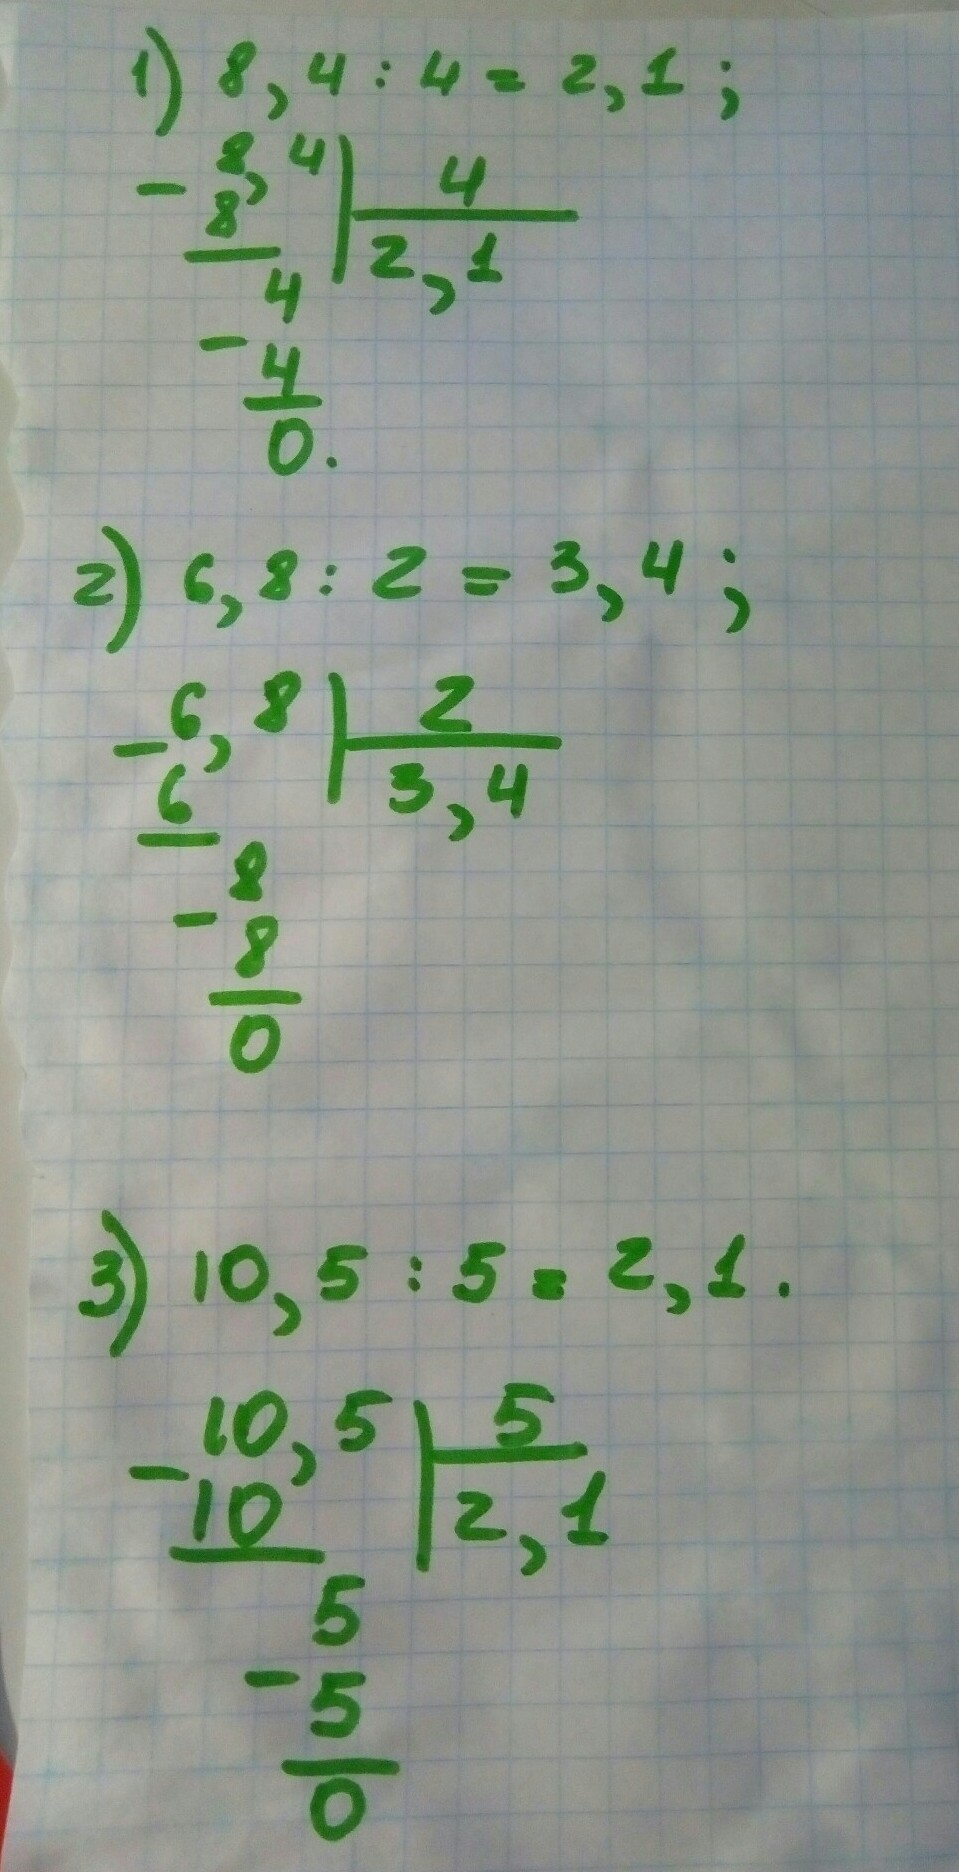 1) 8,4 : 4 = 2,1 ;
- 8,4 | 4
8 | 2,1
4
- 4
0.
2) 6,8 : 2 = 3,4 ;
- 6,8 | 2
6 | 3,4
8
- 8
0
3) 10,5 : 5 = 2,1 .
- 10,5 | 5
10 | 2,1
5
- 5
0